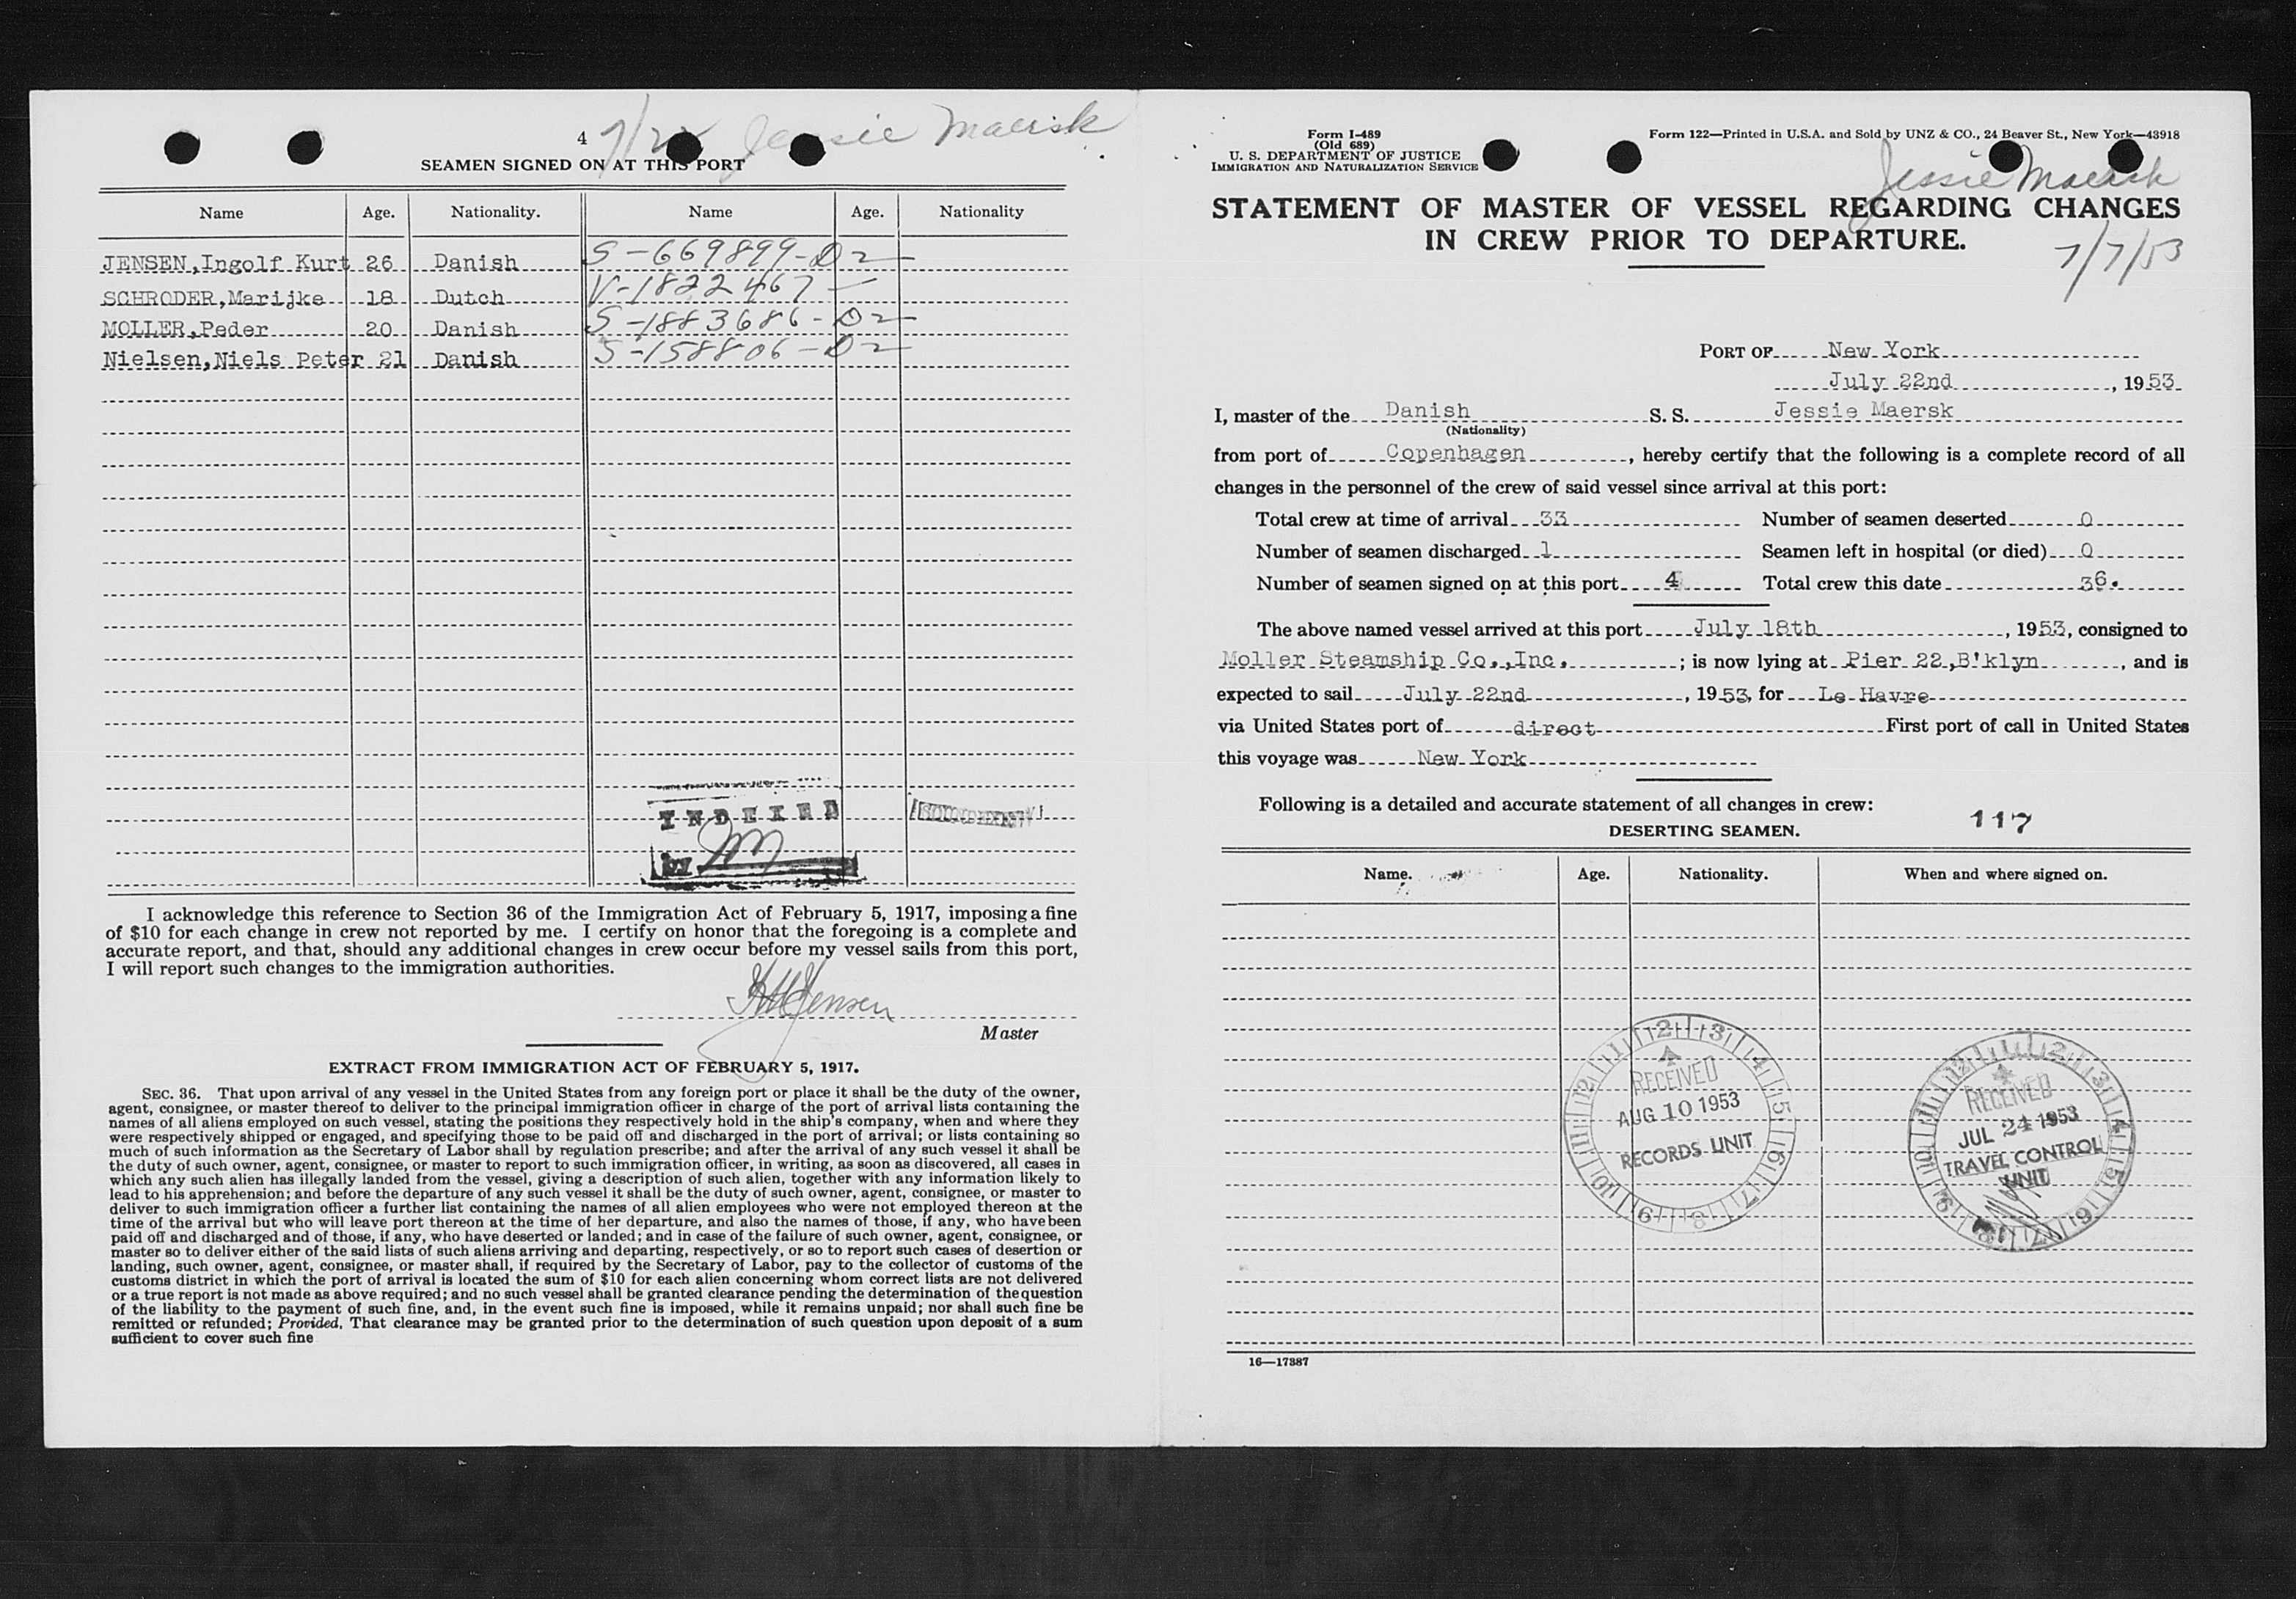 4 7/22 Jessie Maersk
SEAMEN SIGNED ON AT THIS PORT
Name Age. Nationality. Name Age. Nationality
JENSEN,Ingolf Kurt 26 Danish S-669899-D2
SCHRODER,Marijke 18 Dutch V-1822467
MOLLER,Peder 20 Danish S-1883686-D2
Nielsen,Niels Peter 21 Danish S-158806-D2
INDEXED
by
I acknowledge this reference to Section 36 of the Immigration Act of February 5, 1917, imposing a fine
of $10 for each change in crew not reported by me. I certify on honor that the foregoing is a complete and
accurate report, and that, should any additional changes in crew occur before my vessel sails from this port,
I will report such changes to the immigration authorities.
Jensen
Master
EXTRACT FROM IMMIGRATION ACT OF FEBRUARY 5, 1917.
SEC. 36. That upon arrival of any vessel in the United States from any foreign port or place it shall be the duty of the owner,
agent, consignee, or master thereof to deliver to the principal immigration officer in charge of the port of arrival lists containing the
names of all aliens employed on such vessel, stating the positions they respectively hold in the ship's company, when and where they
were respectively shipped or engaged, and specifying those to be paid off and discharged in the port of arrival; or lists containing so
much of such information as the Secretary of Labor shall by regulation prescribe; and after the arrival of any such vessel it shall be
the duty of such owner, agent, consignee, or master to report to such immigration officer, in writing, as soon as discovered, all cases in
which any such alien has illegally landed from the vessel, giving a description of such alien, together with any information likely to
lead to his apprehension; and before the departure of any such vessel it shall be the duty of such owner, agent, consignee, or master to
deliver to such immigration officer a further list containing the names of all alien employees who were not employed thereon at the
time of the arrival but who will leave port thereon at the time of her departure, and also the names of those, if any, who have been
paid off and discharged and of those, if any, who have deserted or landed; and in case of the failure of such owner, agent, consignee, or
master so to deliver either of the said lists of such aliens arriving and departing, respectively, or so to report such cases of desertion or
landing, such owner, agent, consignee, or master shall, if required by the Secretary of Labor, pay to the collector of customs of the
customs district in which the port of arrival is located the sum of $10 for each alien concerning whom correct lists are not delivered
or a true report is not made as above required; and no such vessel shall be granted clearance pending the determination of the question
of the liability to the payment of such fine, and, in the event such fine is imposed, while it remains unpaid; nor shall such fine be
remitted or refunded; Provided, That clearance may be granted prior to the determination of such question upon deposit of a sum
sufficient to cover such fine
Form I-489
(Old 689)
U. S. DEPARTMENT OF JUSTICE
IMMIGRATION AND NATURALIZATION SERVICE
Form 122—Printed in U.S.A. and Sold by UNZ & CO., 24 Beaver St., New York—43918
Jessie Maersk
STATEMENT OF MASTER OF VESSEL REGARDING CHANGES
IN CREW PRIOR TO DEPARTURE.
7/7/53
PORT OF New York
July 22nd, 1953
I, master of the Danish S. S. Jessie Maersk
(Nationality)
from port of Copenhagen, hereby certify that the following is a complete record of all
changes in the personnel of the crew of said vessel since arrival at this port:
Total crew at time of arrival 33 Number of seamen deserted 0
Number of seamen discharged 1 Seamen left in hospital (or died) 0
Number of seamen signed on at this port 4 Total crew this date 36.
The above named vessel arrived at this port July 18th, 1953, consigned to
Moller Steamship Co.,Inc. ; is now lying at Pier 22,B'klyn, and is
expected to sail July 22nd, 1953, for Le Havre
via United States port of direct First port of call in United States
this voyage was New York
Following is a detailed and accurate statement of all changes in crew:
117
DESERTING SEAMEN.
Name. Age. Nationality. When and where signed on.
RECEIVED
AUG 10 1953
RECORDS UNIT
RECEIVED
JUL 24 1953
TRAVEL CONTROL
UNIT
16—17387